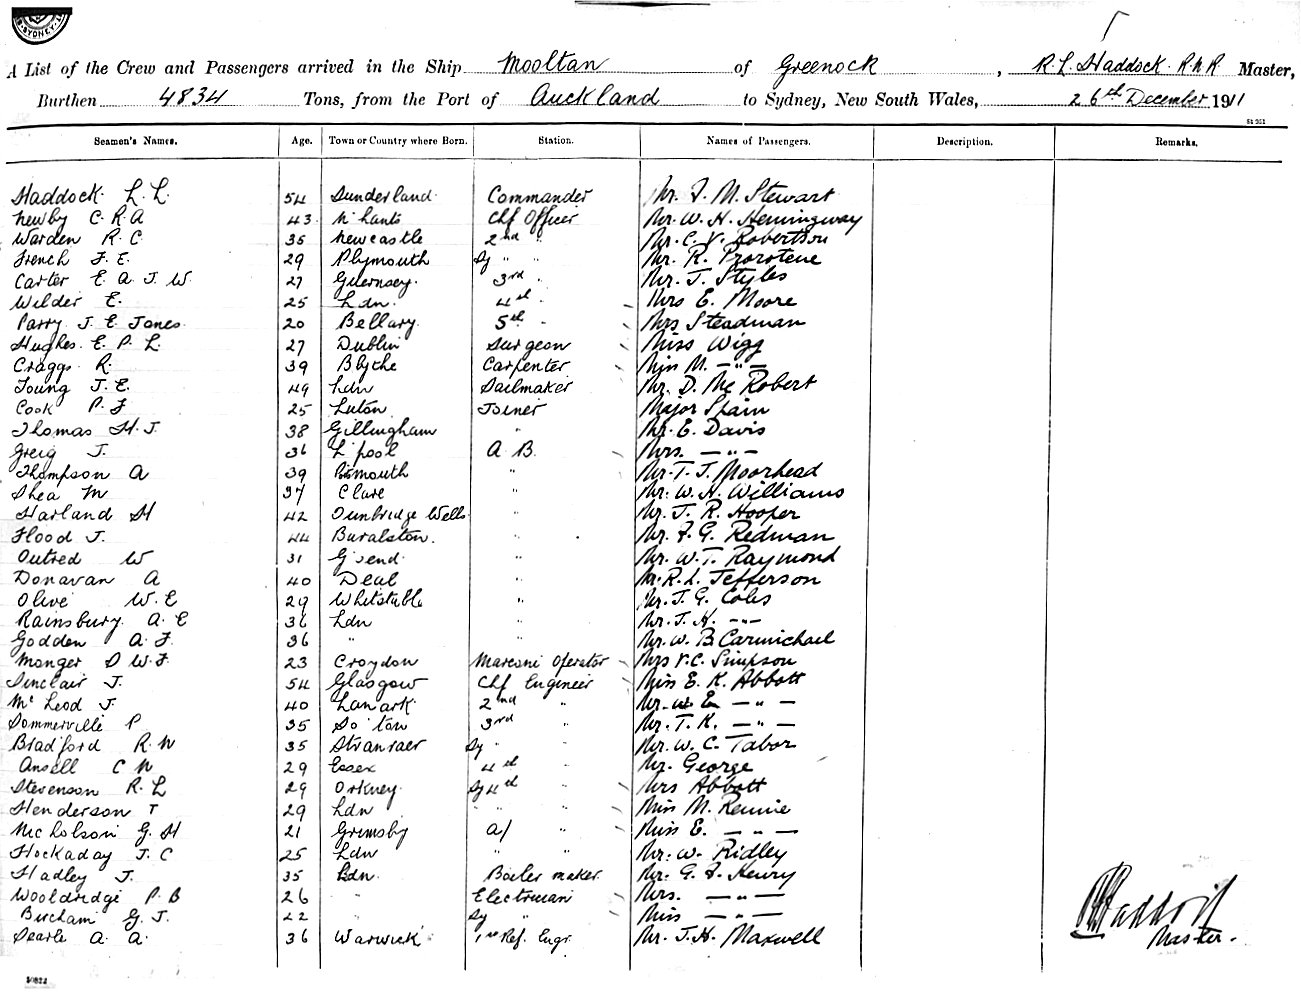 SYDNEY
A List of the Crew and Passengers arrived in the Ship Mooltan of Greenock, R. L. Haddock. R.N.R Master,
Burthen 4834 Tons, from the Port of Auckland to Sydney, New South Wales, 26th December 1911
Seamen's Names. Age. Town or Country where Born. Station. Names of Passengers. Description. Remarks.
Haddock L. L. 54 Sunderland Commander Mr. F. M. Stewart
Newby C. R. A 43 N'hants Chf Officer Mr. W. H. Hemingway
Warden R. C. 35 Newcastle 2nd " Mr. C. V. Robertson
French F. E. 29 Plymouth Sy " " Mr. R.
Carter E. A. J. W. 27 Guernsey. 3rd " Mr. J. Styles
Wilder E. 25 Ldn. 4th " Mrs E. Moore
Parry J. E. Jones 20 Bellary. 5th " Mrs Steadman
Hughes. E. P. L. 27 Dublin Surgeon Miss Wigg
Craggs R. 39 Blythe Carpenter Miss M. — " —
Young J. E. 49 Ldn Sailmaker Mr. D. Mc Robert
Cook P. J 25 Luton Joiner Major Spain
Thomas H. J. 38 Gillingham " Mr. E. Davis
Greig J. 36 L'pool A. B. Mrs. — " —
Thompson A 39 Ptsmouth " Mr. T. J. Moorhead
Shea M 37 Clare " Mr. W. H. Williams
Harland H 42 Tunbridge Wells " Mr. J. R. Hooper
Flood J. 44 Buralston. " Mr. F. G. Redman
Outred W 31 G'send " Mr. W. T. Raymond
Donavan A 40 Deal " Mr. R. L. Jefferson
Olive W. E 29 Whitstable " Mr. J. G. Coles
Rainsbury. A. E 36 Ldn " Mr. J. H. — " —
Godden A. F. 36 " " Mr. W. B Carmichael
Monger S W. F. 23 Croydon Marconi Operator Mrs V. C. Simpson
Sinclair J. 54 Glasgow Chf Engineer Miss E. K. Abbott
Mc Leod J. 40 Lanark 2nd " Mr. W. E — " —
Sommerville P 35 So'ton 3rd " Mr. T. K. — " —
Bradford R. W 35 Stranraer Sy " " Mr. W. C. Tabor
Ansell C W 29 Essex 4th " Mr. George
Stevenson R. L 29 Orkney Sy 4th " Mrs Abbott
Henderson T 29 Ldn " " " Miss M. Rennie
Nicholson G. H 21 Grimsby a/ " Miss E. — " —
Hockaday J. C 25 Ldn " " Mr. W. Ridley
Hadley J. 35 Ldn. Boiler maker Mr. G. F. Henry
Wooldridge P. B 26 " Electrician Mrs. — " —
Bircham G. J. 22 " Sy " Miss — " —
Searle A. A. 36 Warwick 1st Ref. Engr. Mr. J. H. Maxwell
RLHaddock
Master.